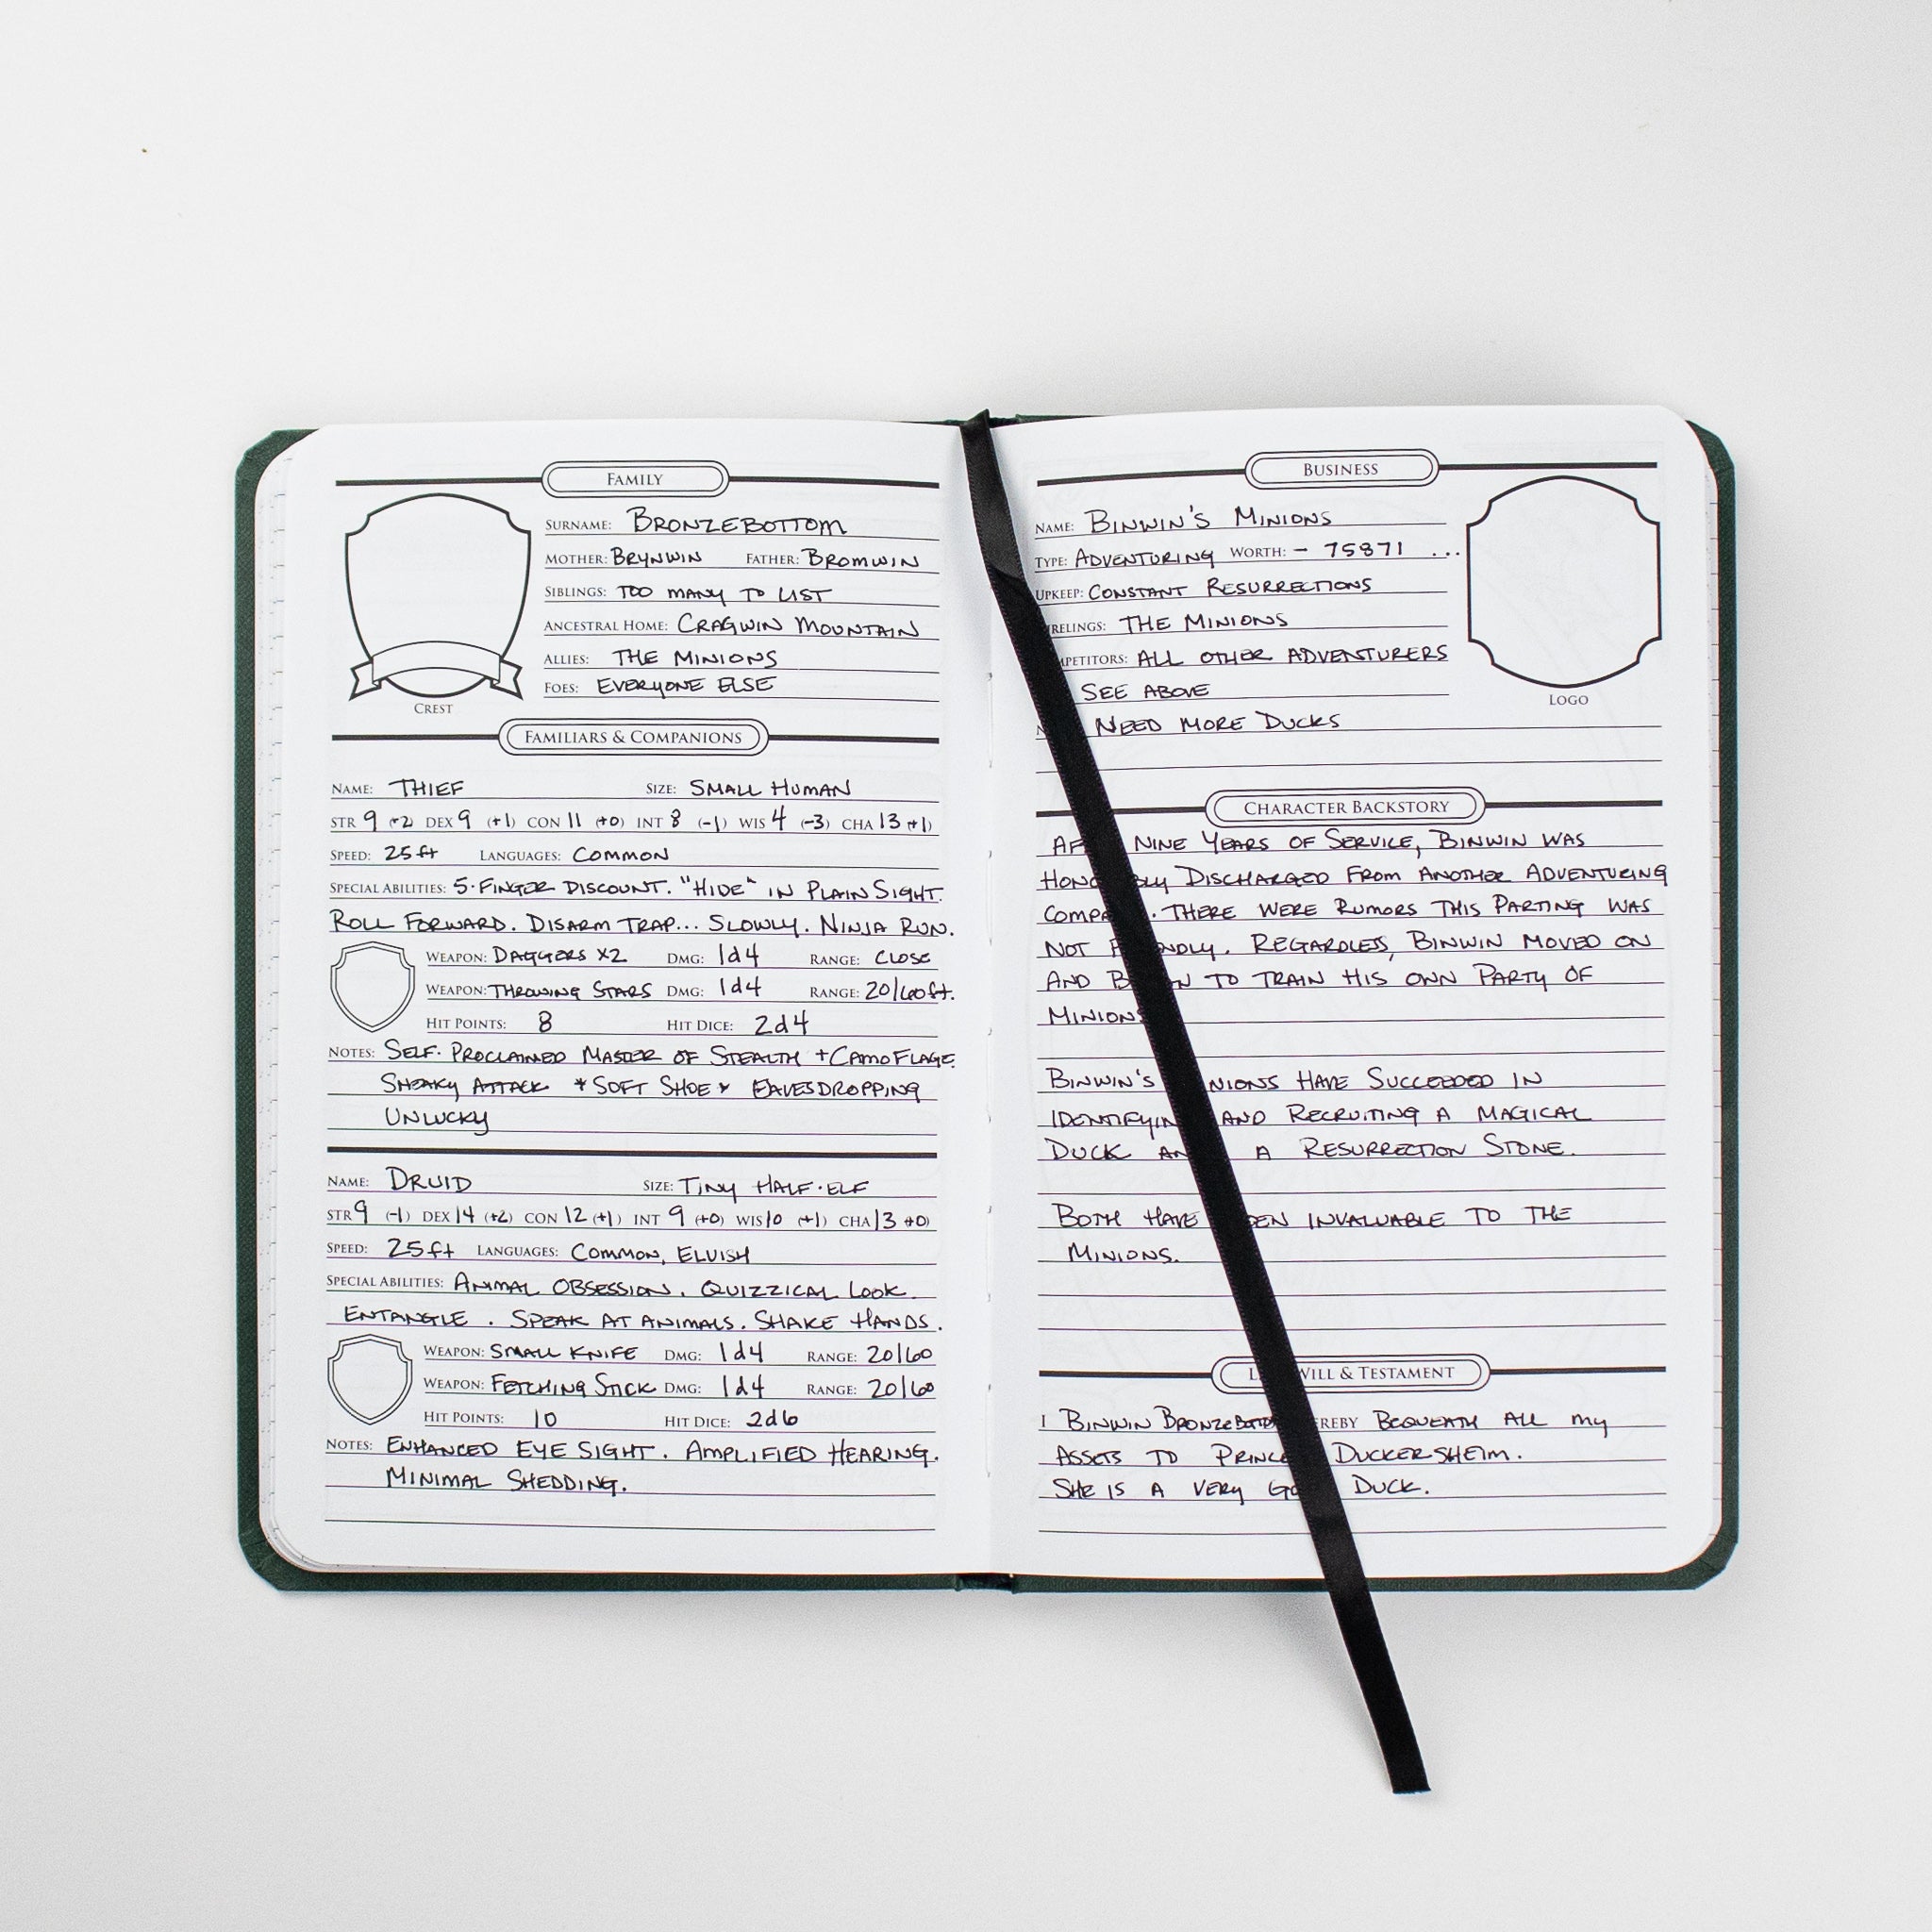 FAMILY
SURNAME: BRONZEBOTTOM
MOTHER: BRYNWIN FATHER: BROMWIN
SIBLINGS: TOO MANY TO LIST
ANCESTRAL HOME: CRAGWIN MOUNTAIN
ALLIES: THE MINIONS
FOES: EVERYONE ELSE
CREST
FAMILIARS & COMPANIONS
NAME: THIEF SIZE: SMALL HUMAN
STR 9 (+2) DEX 9 (+1) CON 11 (+0) INT 8 (-1) WIS 4 (-3) CHA 13 (+1)
SPEED: 25 ft LANGUAGES: COMMON
SPECIAL ABILITIES: 5-FINGER DISCOUNT. "HIDE" IN PLAIN SIGHT.
ROLL FORWARD. DISARM TRAP... SLOWLY. NINJA RUN.
WEAPON: DAGGERS X2 DMG: 1d4 RANGE: CLOSE
WEAPON: THROWING STARS DMG: 1d4 RANGE: 20/60ft.
HIT POINTS: 8 HIT DICE: 2d4
NOTES: SELF-PROCLAIMED MASTER OF STEALTH + CAMOFLAGE
SNEAKY ATTACK * SOFT SHOE * EAVESDROPPING
UNLUCKY
NAME: DRUID SIZE: TINY HALF-ELF
STR 9 (-1) DEX 14 (+2) CON 12 (+1) INT 9 (+0) WIS 10 (+1) CHA 13 (+0)
SPEED: 25 ft LANGUAGES: COMMON, ELVISH
SPECIAL ABILITIES: ANIMAL OBSESSION. QUIZZICAL LOOK.
ENTANGLE. SPEAK AT ANIMALS. SHAKE HANDS.
WEAPON: SMALL KNIFE DMG: 1d4 RANGE: 20/60
WEAPON: FETCHING STICK DMG: 1d4 RANGE: 20/60
HIT POINTS: 10 HIT DICE: 2d6
NOTES: ENHANCED EYE SIGHT. AMPLIFIED HEARING.
MINIMAL SHEDDING.
BUSINESS
NAME: BINWIN'S MINIONS
TYPE: ADVENTURING WORTH: - 75871 ...
UPKEEP: CONSTANT RESURRECTIONS
RELINGS: THE MINIONS
PETITORS: ALL OTHER ADVENTURERS
SEE ABOVE
NEED MORE DUCKS
LOGO
CHARACTER BACKSTORY
AF NINE YEARS OF SERVICE, BINWIN WAS
HONO BLY DISCHARGED FROM ANOTHER ADVENTURING
COMPA . THERE WERE RUMORS THIS PARTING WAS
NOT F NDLY. REGARDLESS, BINWIN MOVED ON
AND B N TO TRAIN HIS OWN PARTY OF
MINIONS
BINWIN'S NIONS HAVE SUCCEEDED IN
IDENTIFYIN AND RECRUITING A MAGICAL
DUCK AN A RESURRECTION STONE.
BOTH HAVE EEN INVALUABLE TO THE
MINIONS.
L WILL & TESTAMENT
I BINWIN BRONZEBOTTO EREBY BEQUEATH ALL MY
ASSETS TO PRINCE DUCKERSHEIM.
SHE IS A VERY GO DUCK.